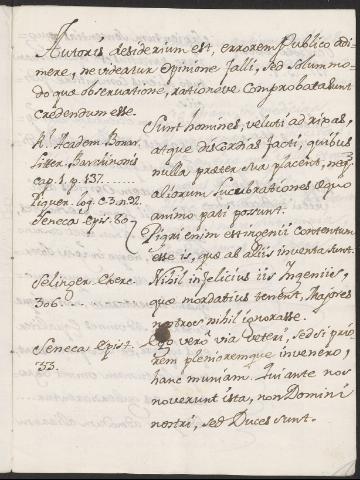 Autoris desiderium est, errorem Publico adi-
mere, ne videatur Opinione falli, sed solummo-
do quæ observatione, rationove Comprobata sunt
credendum esse.
Rl. Academ Bonar.
Litter. Barcinonis
cap. 1. p. 137.
Piquer. log. C. 3. n. 32.
Seneca Epis. 80
Sunt homines, veluti ad rixas,
atque discordias jacti, quibus
nulla præter sua placent, neq
aliorum lucubrationes æquo
animo pati possunt.
Pigri enim est ingenii Contentum
esse is, quæ ab aliis inventa sunt.
306.
Nihil infelicius iis Ingeniis,
quæ mordatius tenent, Majores
nostros nihil ignorasse.
Seneca Epist.
33.
Ego vero via veteri, sed si pro-
rem plenioremque invenero,
hanc muniam. Qui ante nos
noverunt ista, non Domini
nostri, sed Duces sunt.